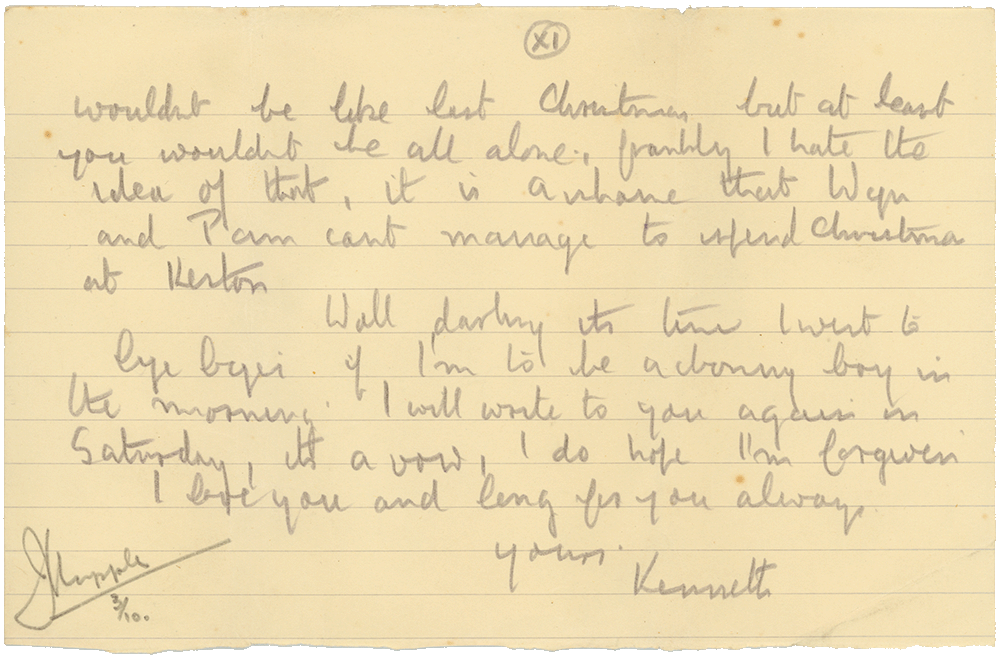 XI
wouldnt be like last Christmas but at least
you wouldnt be all alone., frankly I hate the
idea of that, it is a shame that Wyn
and Pam cant manage to spend Christmas
at Keston
Well darling its time I went to
bye byes if I'm to be a bonny boy in
the morning. I will write to you again on
Saturday, its a vow, I do hope I'm forgiven
I love you and long for you always.
yours.
Kenneth
3/10.